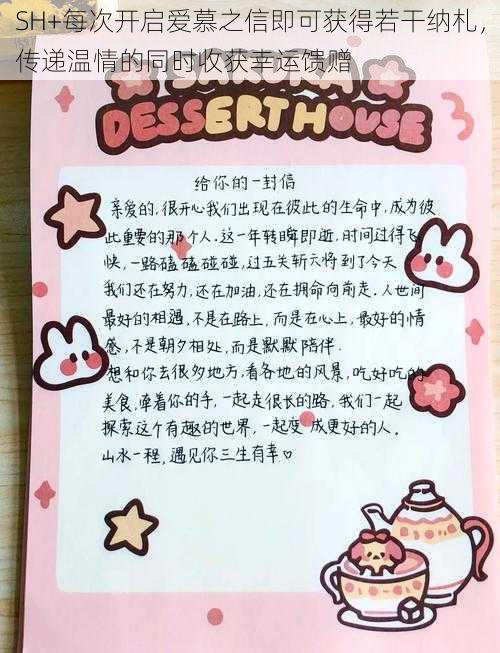 SH+每次开启爱慕之信即可获得若干纳札，
传递温情的同时收获幸运馈赠
DESSERT HOUSE
给你的一封信
亲爱的，很开心我们出现在彼此的生命中，成为彼
此重要的那个人。这一年转瞬即逝，时间过得飞
快，一路磕磕碰碰，过五关斩六将到了今天
我们还在努力，还在加油，还在拼命向前走。人世间
最好的相遇，不是在路上，而是在心上，最好的情
感，不是朝夕相处，而是默默陪伴。
想和你去很多地方，看各地的风景，吃好吃的
美食，牵着你的手，一起走很长的路，我们一起
探索这个有趣的世界，一起变成更好的人。
山水一程，遇见你三生有幸♡